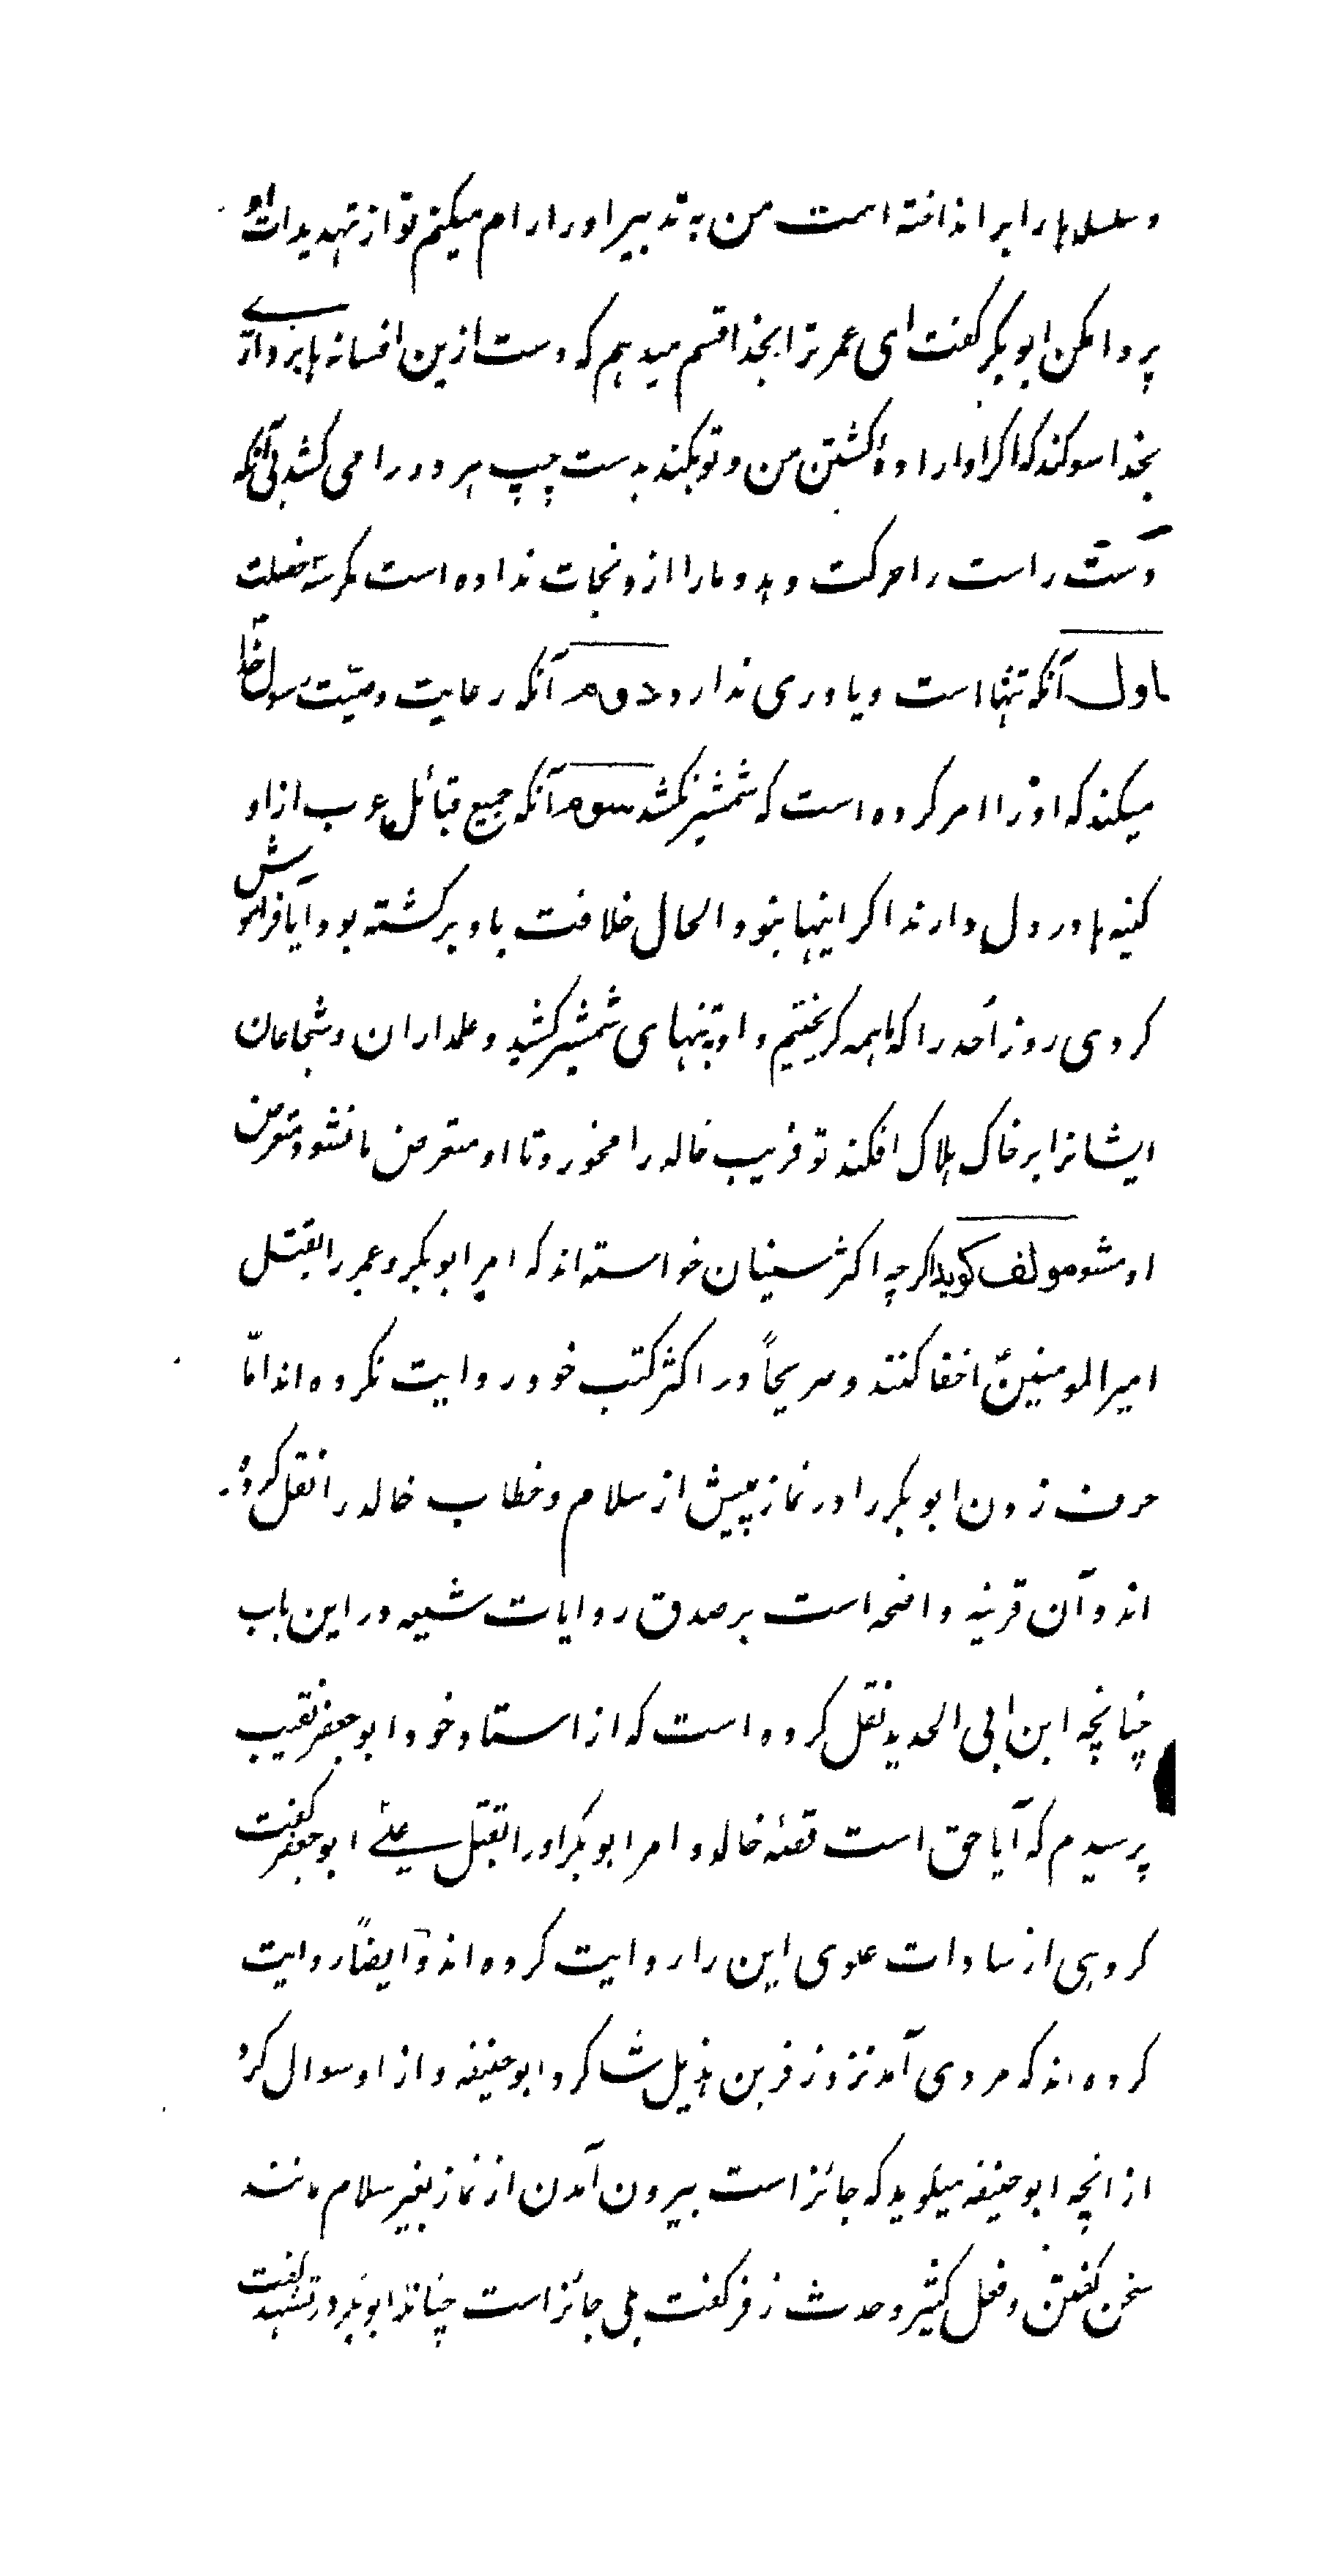 و سلسله‌ها را برانداخته است من به تدبیر او را رام میکنم تو از تهدیدات او
پروا مکن ابوبکر کفت ای عمر ترا بخدا قسم میدهم که دست ازین افسانه‌ها برداری
بخدا سوکند که اکر او اراده کشتن من و تو بکند بدست چپ هر دو را می کشد بی آنکه
دست راست را حرکت دهد و ما را ازو نجات نداده است مکر سه خصلت
اول آنکه تنها است و یاوری ندارد دوم آنکه رعایت وصیّت رسول خدا
میکند که او را امر کرده است که شمشیر نکشد سوم آنکه جمیع قبائل عرب از او
کینه‌ها در دل دارند اکر اینها نبود الحال خلافت باو برکشته بود آیا فراموش
کردی روز اُحد را که ما همه کریختیم و او تنهای شمشیر کشید و علمداران و شجاعان
ایشانرا بر خاک هلاک افکند تو فریب خالد را مخور و تا او متعرض ما نشود متعرض
او مشو مولف کوید اکرچه اکثر سنیان خواسته‌اند که امر ابوبکر و عمر را بقتل
امیرالمومنینؑ اخفا کنند و صریحاً در اکثر کتب خود روایت نکرده‌اند امّا
حرف زدن ابوبکر را در نماز پیش از سلام و خطاب خالد را نقل کرده
اند و آن قرینه واضحه است بر صدق روایات شیعه در این باب
چنانچه ابن ابی الحدید نقل کرده است که از استاد خود ابو جعفر نقیب
پرسیدم که آیا حق است قصّه خالد و امر ابوبکر او را بقتل علیؑ ابو جعفر کفت
کروهی از سادات علوی این را روایت کرده‌اند و ایضاً روایت
کرده‌اند که مردی آمد نزد زفر بن هذیل شاکرد ابو حنیفه و از او سوال کرد
از انچه ابو حنیفه میکوید که جائز است بیرون آمدن از نماز بغیر سلام مانند
سخن کفتن و فعل کثیر و حدث زفر کفت بلی جائز است چنانکه ابوبکر در تشهد کفت